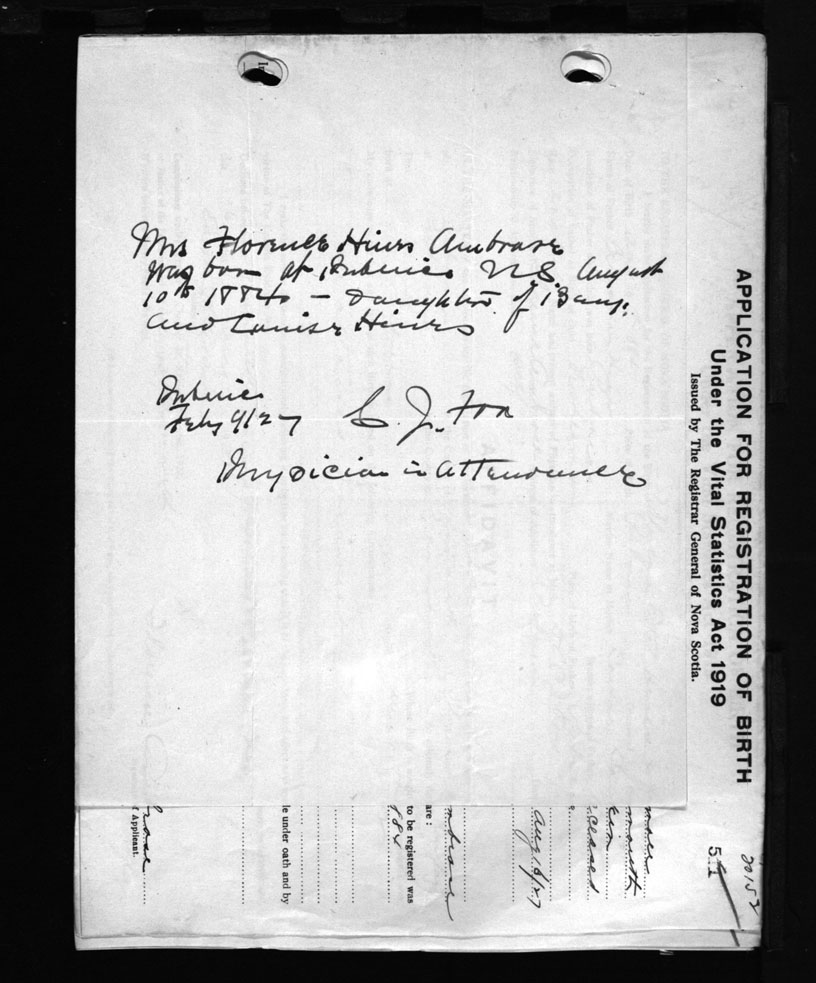 Mrs Florence Hines Ambrose
was born at Pubnico N.S. August
10th 1884 – Daughter of Benj.
and Louise Hines
Pubnico
Feby 9/27 C. J. Fox
Physician in attendance
APPLICATION FOR REGISTRATION OF BIRTH
Under the Vital Statistics Act 1919
Issued by The Registrar General of Nova Scotia.
20152
AFFIDAVIT
Aug 10/27
are :
to be registered was
884
le under oath and by
f Applicant.